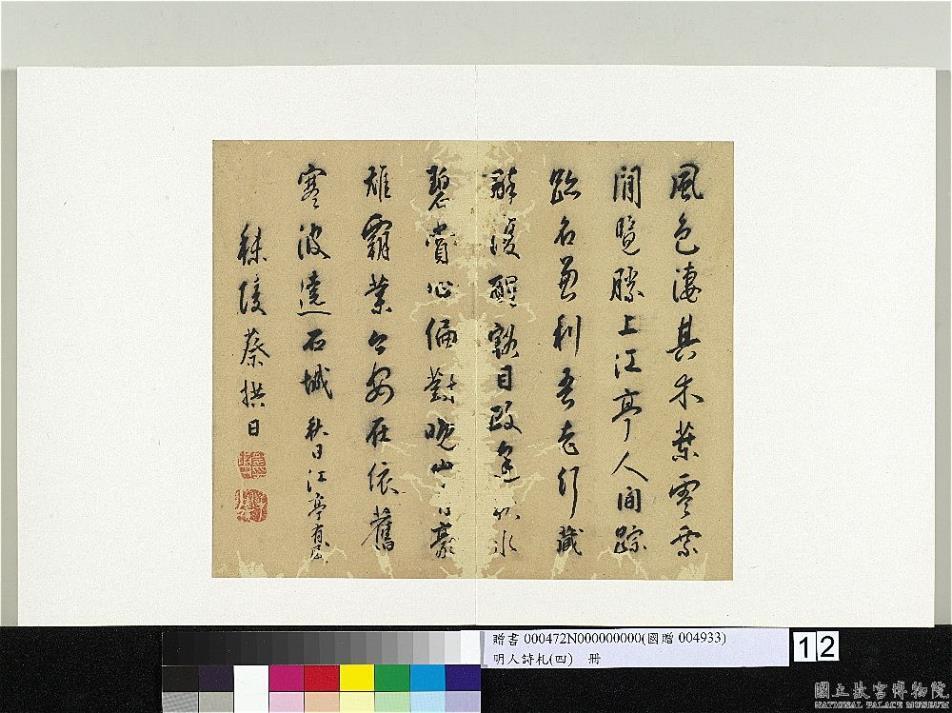 風色淒其木葉零乘
閒覽勝上江亭人間踪
跡名兼利吾老行藏
醉復醒豁目政逢秋水
碧賞心偏對晚山青豪
雄霸業今安在依舊
寒波遶石城 秋日江亭有感
秣陵蔡拱日
贈書 000472N000000000(國贈 004933)
明人詩札(四) 冊
12
國立故宮博物院
NATIONAL PALACE MUSEUM